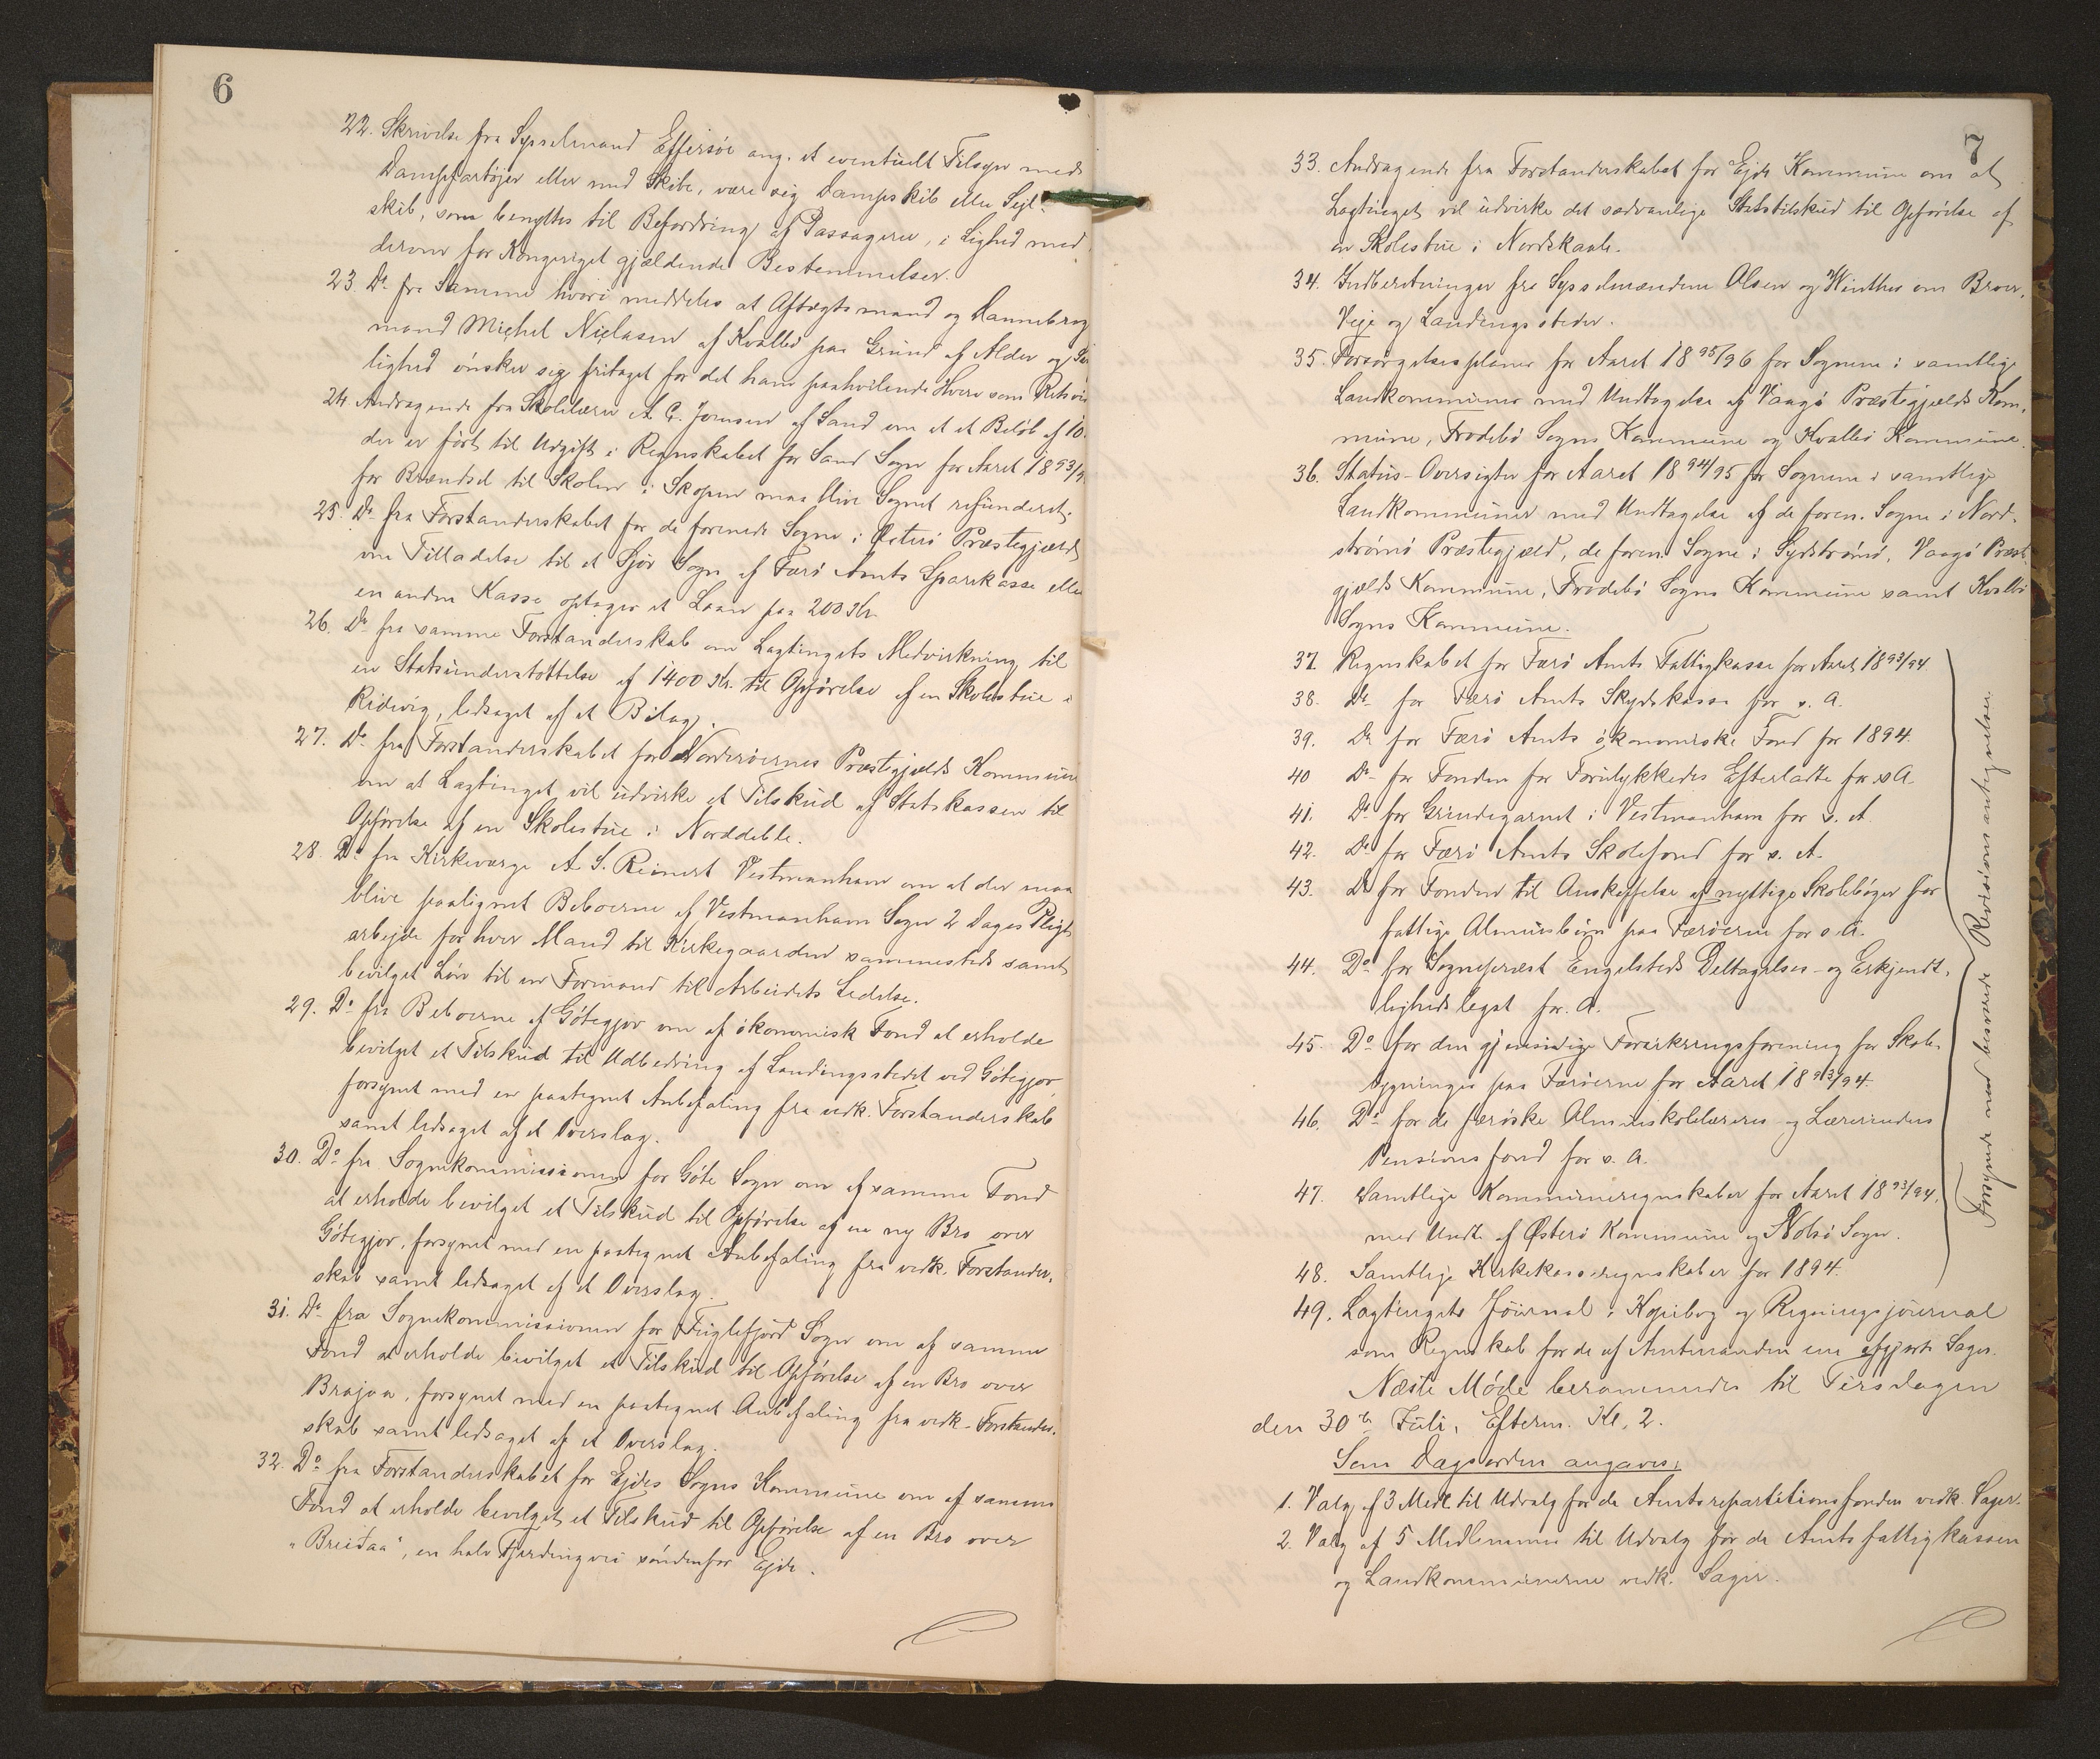 6
22. Skrivelse fra Sysselmand Effersøe ang. et eventuelt Tilsyn med
Dampfartøjer eller med Skibe, være sig Dampskib eller Sejl-
skib, som benyttes til Befordring af Passagerer, i Lighed med
derom for Kongeriget gjældende Bestemmelser.
23. Do fra Samme hvori meddeles at Aftægtsmand og Dannebrog
mand Michel Niclasen af Kvalbø paa Grund af Alder og
lighed ønsker sig fritaget for det ham paahvilende Hverv som
24 Andragende fra Skolelærer A. C. Joensen af Sand om at et Beløb af 10
der er ført til Udgift i Regnskabet for Sand Sogn for Aaret 1893/
for Brændsel til Skolen i Skopun maa blive Sognet refunderet.
25. Do fra Forstanderskabet for de forenede Sogne i Østerø Præstegjæld
om Tilladelse til at Gjov Sogn af Færø Amts Sparekasse eller
en anden Kasse optager et Laan paa 200 Kr.
26. Do fra samme Forstanderskab om Lagtingets Medvirkning til
en Statsunderstøttelse af 1400 Kr. til Opførelse af en Skolestue i
Ridevig, ledsaget af et Bilag.
27. Do fra Forstanderskabet for Norderøernes Præstegjælds Kommune
om at Lagtinget vil udvirke et Tilskud af Statskassen til
Opførelse af en Skolestue i Norddeble.
28. Do fra Kirkeværge A. S. Reinert Vestmanhavn om at der maa
blive paalignet Beboerne af Vestmanhavn Sogn 2 Dages Pligt
arbejde for hver Mand til Kirkegaarden sammesteds samt
bevilget Løn til en Formand til Arbeidets Ledelse.
29. Do fra Beboerne af Gøtegjov om af økonomisk Fond at erholde
bevilget et Tilskud til Udbedring af Landingsstedet ved Gøtegjov,
forsynet med en paategnet Anbefaling fra vedk. Forstanderskab
samt ledsaget af et Overslag.
30. Do fra Sognekommissionen for Gøte Sogn om af samme Fond
at erholde bevilget et Tilskud til Opførelse af en ny Bro over
Gøtegjov, forsynet med en paategnet Anbefaling fra vedk. Forstander-
skab samt ledsaget af et Overslag.
31. Do fra Sognekommissionen for Fuglefjord Sogn om af samme
Fond at erholde bevilget et Tilskud til Opførelse af en Bro over
forsynet med en paategnet Anbefaling fra vedk. Forstander-
skab samt ledsaget af et Overslag.
32. Do fra Forstanderskabet for Ejdes Sogns Kommune om af samme
Fond at erholde bevilget et Tilskud til Opførelse af en Bro over
"Breidaa", en halv Fjerdingvei søndenfor Ejde.
7
33. Andragende fra Forstanderskabet for Ejde Kommune om at
Lagtinget vil udvirke det sædvanlige Statstilskud til Opførelse af
en Skolestue i Nordskaale.
34. Indberetninger fra Sysselmændene Olsen og Winther om Broer,
Veje og Landingssteder.
35. Forsørgelsesplaner for Aaret 1895/96 for Sognene i samtlige
Landkommuner med Undtagelse af Vaagø Præstegjælds Kom-
mune, Frodebø Sogns Kommune og Kvalbø Kommune.
36. Status-Oversigter for Aaret 1894/95 for Sognene i samtlige
Landkommuner med Undtagelse af de foren. Sogne i Nord-
strømø Præstegjæld, de foren. Sogne i Sydstrømø, Vaagø Præste-
gjælds Kommune, Frodebø Sogns Kommune samt Kvalbø
Sogns Kommune.
37. Regnskabet for Færø Amts Fattigkasse for Aaret 1893/94.
38. Do for Færø Amts Skydskasse for s. A.
39. Do for Færø Amts økonomiske Fond for 1894.
40 Do for Fonden for Forulykkedes Efterladte for s A.
41. Do for Grindegarnet i Vestmanhavn for s. A.
42. Do for Færø Amts Skolefond for s. A.
43. Do for Fonden til Anskaffelse af nyttige Skolebøger for
fattige Almuesbørn paa Færøerne for s. A.
44. Do for Sognepræst Engelsteds Deltagelses- og Erkjendt-
lighedslegat for. A.
45. Do for den gjensidige Forsikringsforening for Skole-
bygninger paa Færøerne for Aaret 1893/94.
46. Do for de færøske Almueskolelæreres og Lærerinders
Pensionsfond for s. A.
47. Samtlige Kommuneregnskaber for Aaret 1893/94,
med Undt. af Østerø Kommune og Nolsø Sogn.
48. Samtlige Kirkekasseregnskaber for 1894.
Forsynede med besvarede Revisionsantegnelser.
49. Lagtingets Journal, Kopibog og Regningsjournal
som Regnskab for de af Amtmanden ene afgjorte Sager.
Næste Møde berammedes til Tirsdagen
den 30te Juli, Efterm. Kl. 2.
Som Dagsorden angaves:
1. Valg af 3 Medl. til Udvalg for de Amtsrepartitionsfonden vedk. Sager.
2. Valg af 5 Medlemmer til Udvalg for de Amtsfattigkassen
og Landkommunerne vedk. Sager.